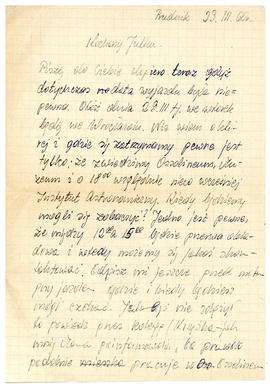 Prudnik 23.III.66.
Kochany Julku.
Piszę do Ciebie dopiero teraz gdyż
dotychczas no data wyjazdu była nie-
pewna. Otóż dnia 29.III tj. we wtorek
będę we Wrocławiu. Nie wiem o któ-
rej i gdzie się zatrzymamy pewne jest
tylko, że zwiedzimy Ossolineum, Mu-
zeum i o 18⁰⁰ względnie nieco wcześniej
Instytut Astronomiczny. Kiedy będziemy
mogli się zobaczyć? Jedno jest pewne,
że między 12 a 15⁰⁰ będzie przerwa obia-
dowa i wtedy możemy się jakoś skon-
taktować. Odpisz mi jeszcze przed
moim gdzie i kiedy będziesz
mógł czekać. Jak byś nie zdążył
to powiedz przez kolegę /
mnie poinformować, że prawdo-
podobnie mieszka pracuje w Ossolineum